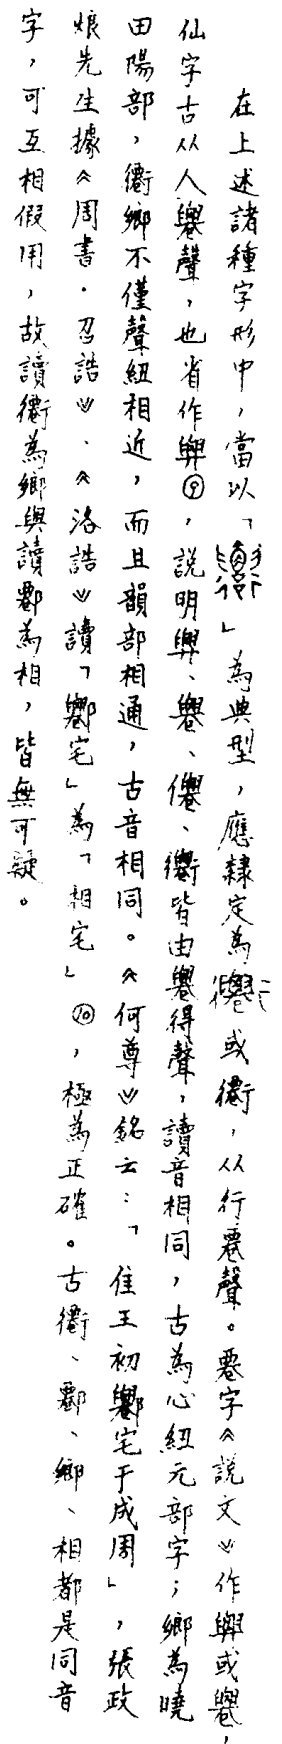 在上述諸種字形中，當以「」為典型，應隸定為或衜，从行䙴聲。䙴字《說文》作𦥊或䙴，
仙字古从人䙴聲，也省作𦥊⑨，說明𦥊、䙴、僊、皆由䙴得聲，讀音相同，古為心紐元部字；鄉為曉
田陽部，鄉不僅聲紐相近，而且韻部相通，古音相同。《何尊》銘云：「隹王初䙴宅于成周」，張政
烺先生據《周書·召誥》、《洛誥》讀「宅」為「相宅」⑩，極為正確。古、鄉、相都是同音
字，可互相假用，故讀為鄉與讀為相，皆無可疑。